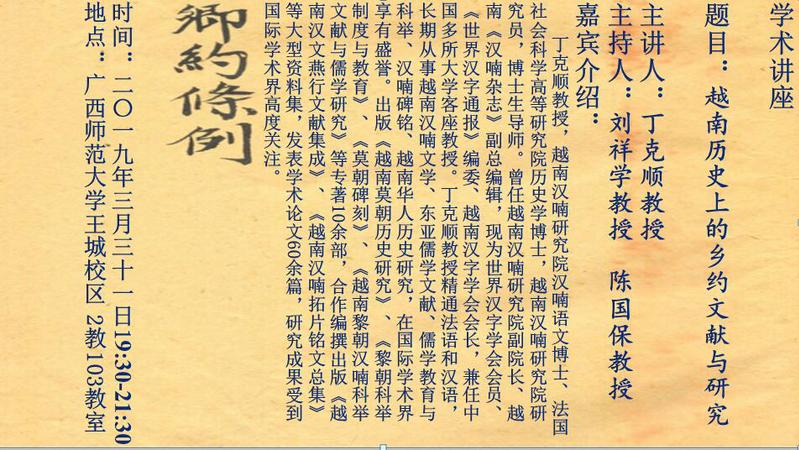 学术讲座
题目：越南历史上的乡约文献与研究
主讲人：丁克顺教授
主持人：刘祥学教授 陈国保教授
嘉宾介绍：
丁克顺教授，越南汉喃研究院汉喃语文博士、法国
社会科学高等研究院历史学博士，越南汉喃研究院研
究员，博士生导师。曾任越南汉喃研究院副院长、越
南《汉喃杂志》副总编辑，现为世界汉字学会会员、
《世界汉字通报》编委、越南汉字学会会长，兼任中
国多所大学客座教授。丁克顺教授精通法语和汉语，
长期从事越南汉喃文学、东亚儒学文献、儒学教育与
科举、汉喃碑铭、越南华人历史研究，在国际学术界
享有盛誉。出版《越南莫朝历史研究》、《黎朝科举
制度与教育》、《莫朝碑刻》、《越南黎朝汉喃科举
文献与儒学研究》等专著10余部，合作编撰出版《越
南汉文燕行文献集成》、《越南汉喃拓片铭文总集》
等大型资料集，发表学术论文60余篇，研究成果受到
国际学术界高度关注。
鄉約條例
时间：二〇一九年三月三十一日19:30-21:30
地点：广西师范大学王城校区 2教103教室